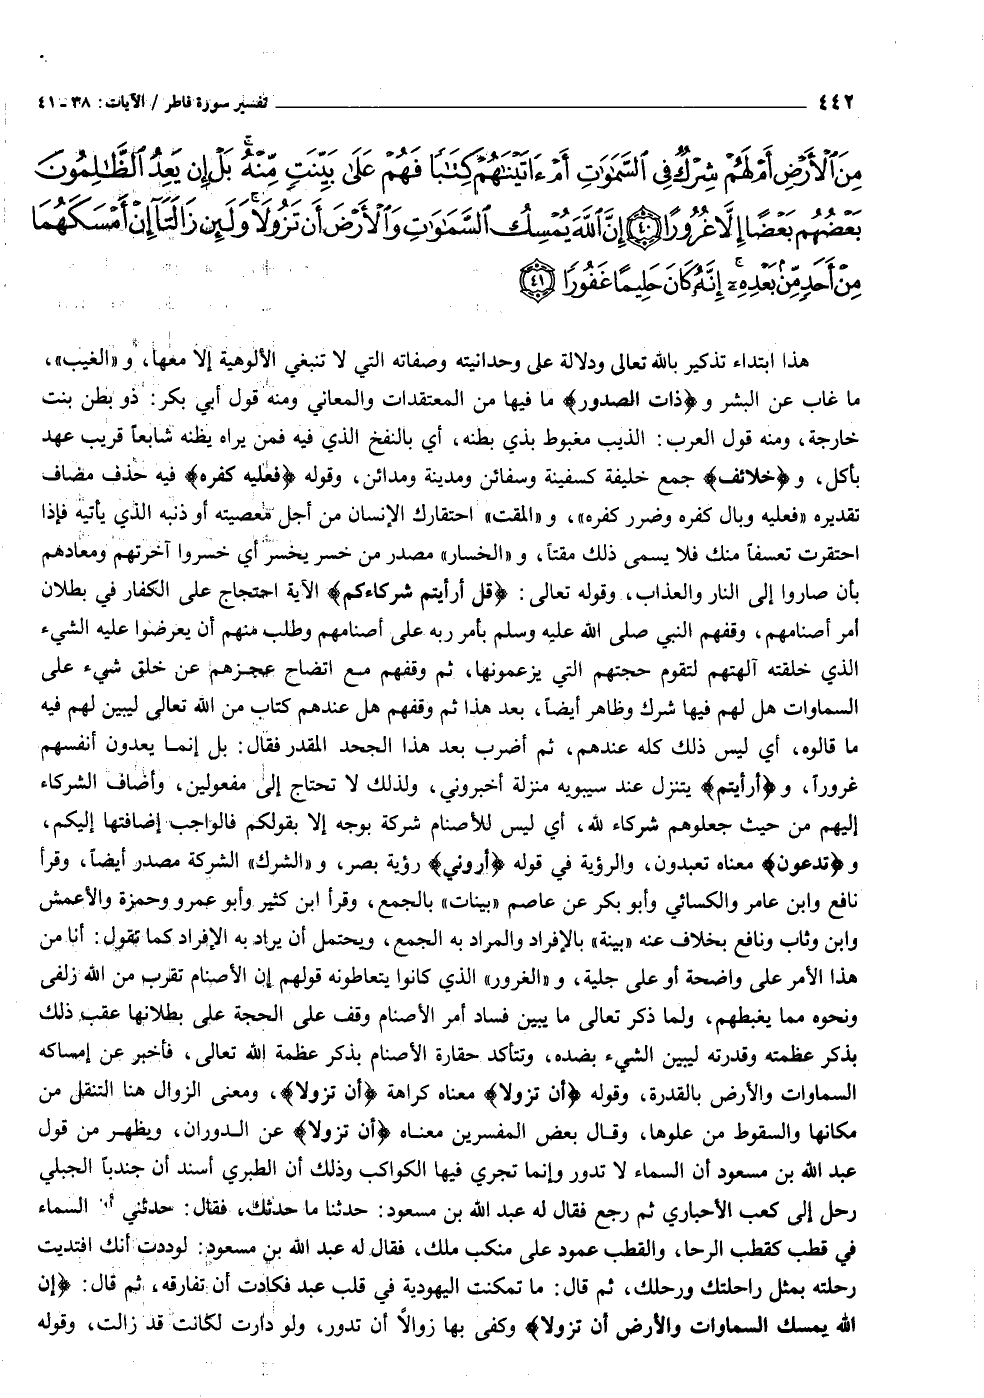 ٤٤٢ ــــــــــــــــــــ تفسير سورة فاطر / الآيات: ٣٨ - ٤١
مِنَ ٱلْأَرْضِ أَمْ لَهُمْ شِرْكٌ فِى ٱلسَّمَٰوَٰتِ أَمْ ءَاتَيْنَٰهُمْ كِتَٰبًا فَهُمْ عَلَىٰ بَيِّنَتٍ مِّنْهُ ۚ بَلْ إِن يَعِدُ ٱلظَّٰلِمُونَ
بَعْضُهُم بَعْضًا إِلَّا غُرُورًا ﴿٤٠﴾ إِنَّ ٱللَّهَ يُمْسِكُ ٱلسَّمَٰوَٰتِ وَٱلْأَرْضَ أَن تَزُولَا ۚ وَلَئِن زَالَتَآ إِنْ أَمْسَكَهُمَا
مِنْ أَحَدٍ مِّنۢ بَعْدِهِۦٓ ۚ إِنَّهُۥ كَانَ حَلِيمًا غَفُورًا ﴿٤١﴾
هذا ابتداء تذكير بالله تعالى ودلالة على وحدانيته وصفاته التي لا تنبغي الألوهية إلا معها، و «الغيب»،
ما غاب عن البشر و ﴿ذات الصدور﴾ ما فيها من المعتقدات والمعاني ومنه قول أبي بكر: ذو بطن بنت
خارجة، ومنه قول العرب: الذيب مغبوط بذي بطنه، أي بالنفخ الذي فيه فمن يراه يظنه شابعاً قريب عهد
بأكل، و ﴿خلائف﴾ جمع خليفة كسفينة وسفائن ومدينة ومدائن، وقوله ﴿فعليه كفره﴾ فيه حذف مضاف
تقديره «فعليه وبال كفره وضرر كفره»، و «المقت» احتقارك الإنسان من أجل معصيته أو ذنبه الذي يأتية فإذا
احتقرت تعسفاً منك فلا يسمى ذلك مقتاً، و «الخسار» مصدر من خسر يخسر أي خسروا آخرتهم ومعادهم
بأن صاروا إلى النار والعذاب، وقوله تعالى: ﴿قل أرأيتم شركاءكم﴾ الآية احتجاج على الكفار في بطلان
أمر أصنامهم، وقفهم النبي صلى الله عليه وسلم بأمر ربه على أصنامهم وطلب منهم أن يعرضوا عليه الشيء
الذي خلقته آلهتهم لتقوم حجتهم التي يزعمونها، ثم وقفهم مع اتضاح عجزهم عن خلق شيء على
السماوات هل لهم فيها شرك وظاهر أيضاً، بعد هذا ثم وقفهم هل عندهم كتاب من الله تعالى ليبين لهم فيه
ما قالوه، أي ليس ذلك كله عندهم، ثم أضرب بعد هذا الجحد المقدر فقال: بل إنما يعدون أنفسهم
غروراً، و ﴿أرأيتم﴾ يتنزل عند سيبويه منزلة أخبروني، ولذلك لا تحتاج إلى مفعولين، وأضاف الشركاء
إليهم من حيث جعلوهم شركاء لله، أي ليس للأصنام شركة بوجه إلا بقولكم فالواجب إضافتها إليكم،
و ﴿تدعون﴾ معناه تعبدون، والرؤية في قوله ﴿أروني﴾ رؤية بصر، و «الشرك» الشركة مصدر أيضاً، وقرأ
نافع وابن عامر والكسائي وأبو بكر عن عاصم «بينات» بالجمع، وقرأ ابن كثير وأبو عمرو وحمزة والأعمش
وابن وثاب ونافع بخلاف عنه «بينة» بالإفراد والمراد به الجمع، ويحتمل أن يراد به الإفراد كما تقول: أنا من
هذا الأمر على واضحة أو على جلية، و «الغرور» الذي كانوا يتعاطونه قولهم إن الأصنام تقرب من الله زلفى
ونحوه مما يغبطهم، ولما ذكر تعالى ما يبين فساد أمر الأصنام وقف على الحجة على بطلانها عقب ذلك
بذكر عظمته وقدرته ليبين الشيء بضده، وتتأكد حقارة الأصنام بذكر عظمة الله تعالى، فأخبر عن إمساكه
السماوات والأرض بالقدرة، وقوله ﴿أن تزولا﴾ معناه كراهة ﴿أن تزولا﴾، ومعنى الزوال هنا التنقل من
مكانها والسقوط من علوها، وقال بعض المفسرين معناه ﴿أن تزولا﴾ عن الدوران، ويظهر من قول
عبد الله بن مسعود أن السماء لا تدور وإنما تجري فيها الكواكب وذلك أن الطبري أسند أن جندباً الجبلي
رحل إلى كعب الأحباري ثم رجع فقال له عبد الله بن مسعود: حدثنا ما حدثك، فقال: حدثني أن السماء
في قطب كقطب الرحا، والقطب عمود على منكب ملك، فقال له عبد الله بن مسعود: لوددت أنك افتديت
رحلته بمثل راحلتك ورحلك، ثم قال: ما تمكنت اليهودية في قلب عبد فكادت أن تفارقه، ثم قال: ﴿إن
الله يمسك السماوات والأرض أن تزولا﴾ وكفى بها زوالاً أن تدور، ولو دارت لكانت قد زالت، وقوله